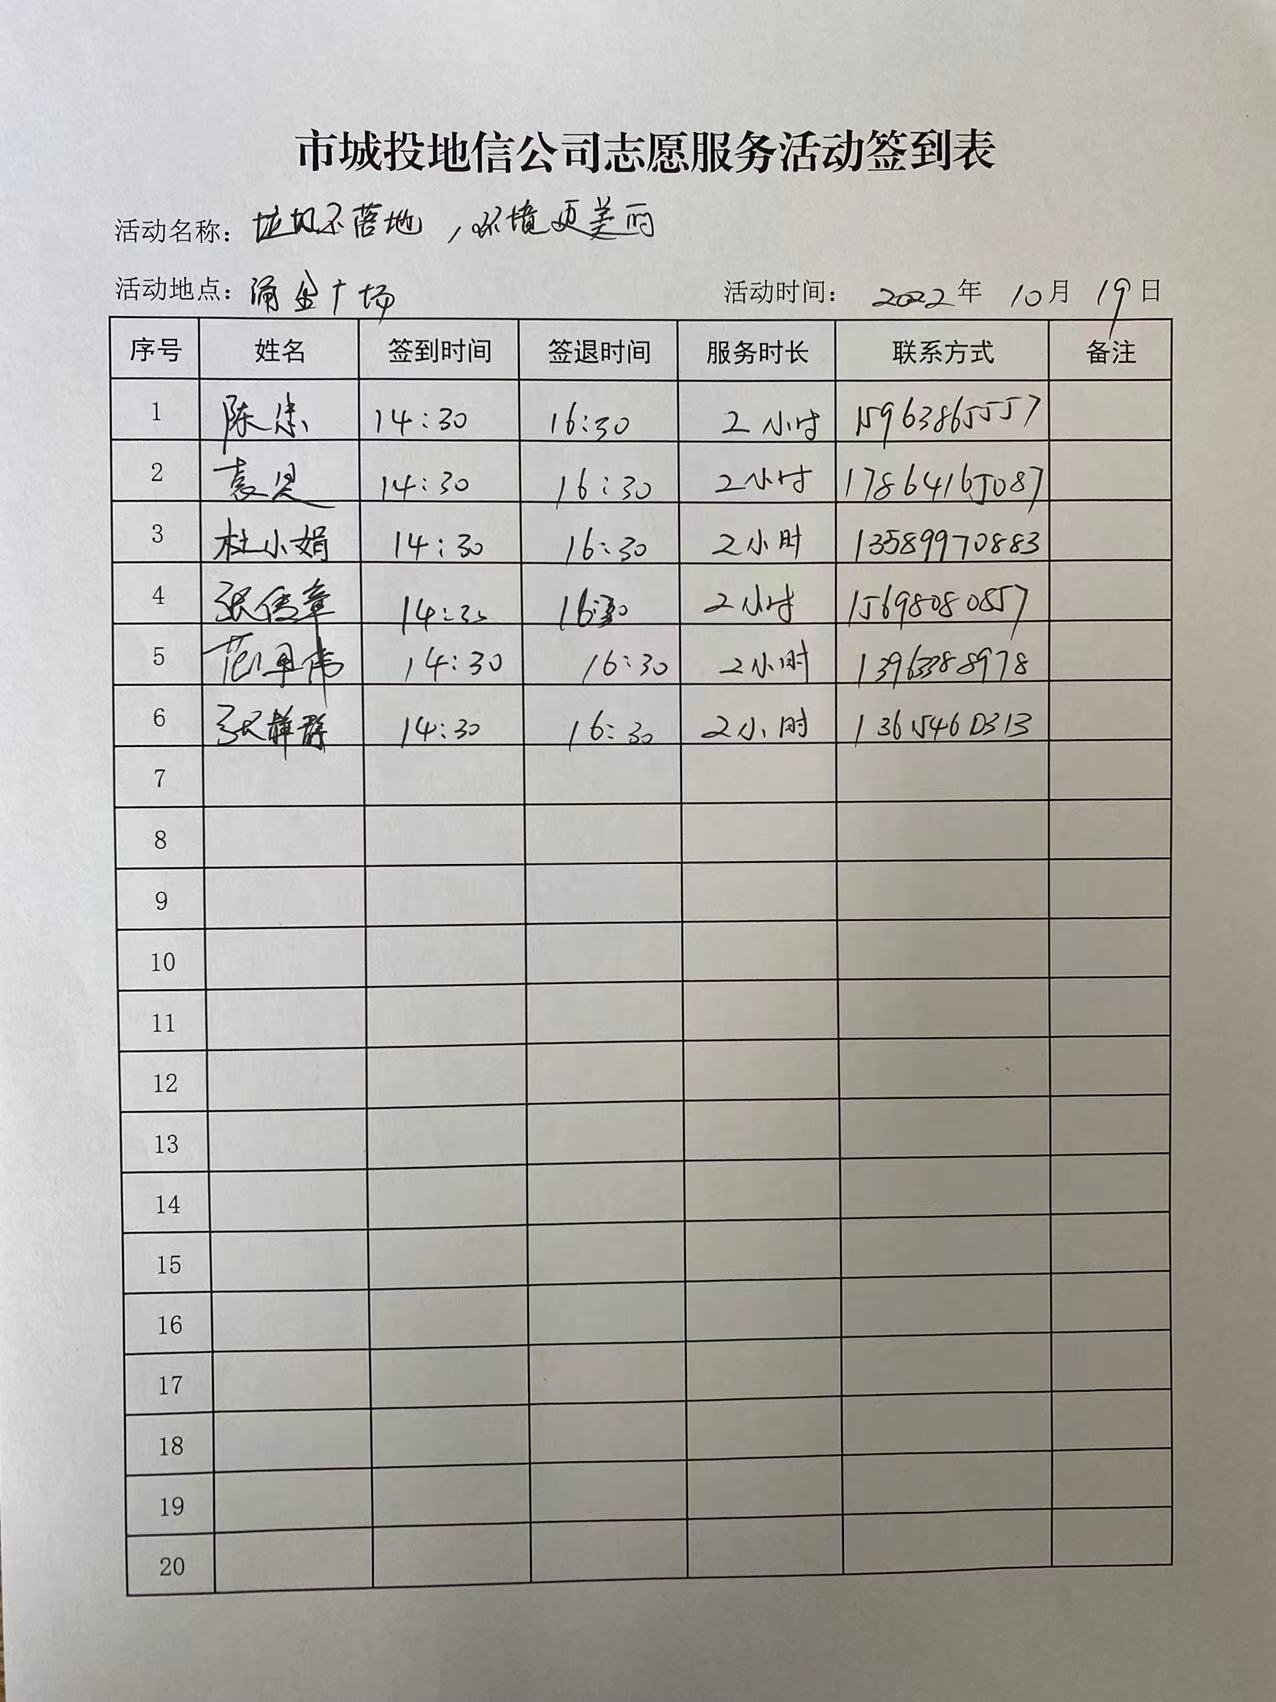 市城投地信公司志愿服务活动签到表
活动名称：垃圾不落地，环境更美丽
活动地点：涌金广场 活动时间： 2022年 10月 19日
序号 姓名 签到时间 签退时间 服务时长 联系方式 备注
1 陈忠 14:30 16:30 2小时 15963865557
2 14:30 16:30 2小时 17864165087
3 杜小娟 14:30 16:30 2小时 13589970883
4 张传章 14:30 16:30 2小时 15698080857
5 范军伟 14:30 16:30 2小时 13963388978
6 张群 14:30 16:30 2小时 13615460313
7
8
9
10
11
12
13
14
15
16
17
18
19
20